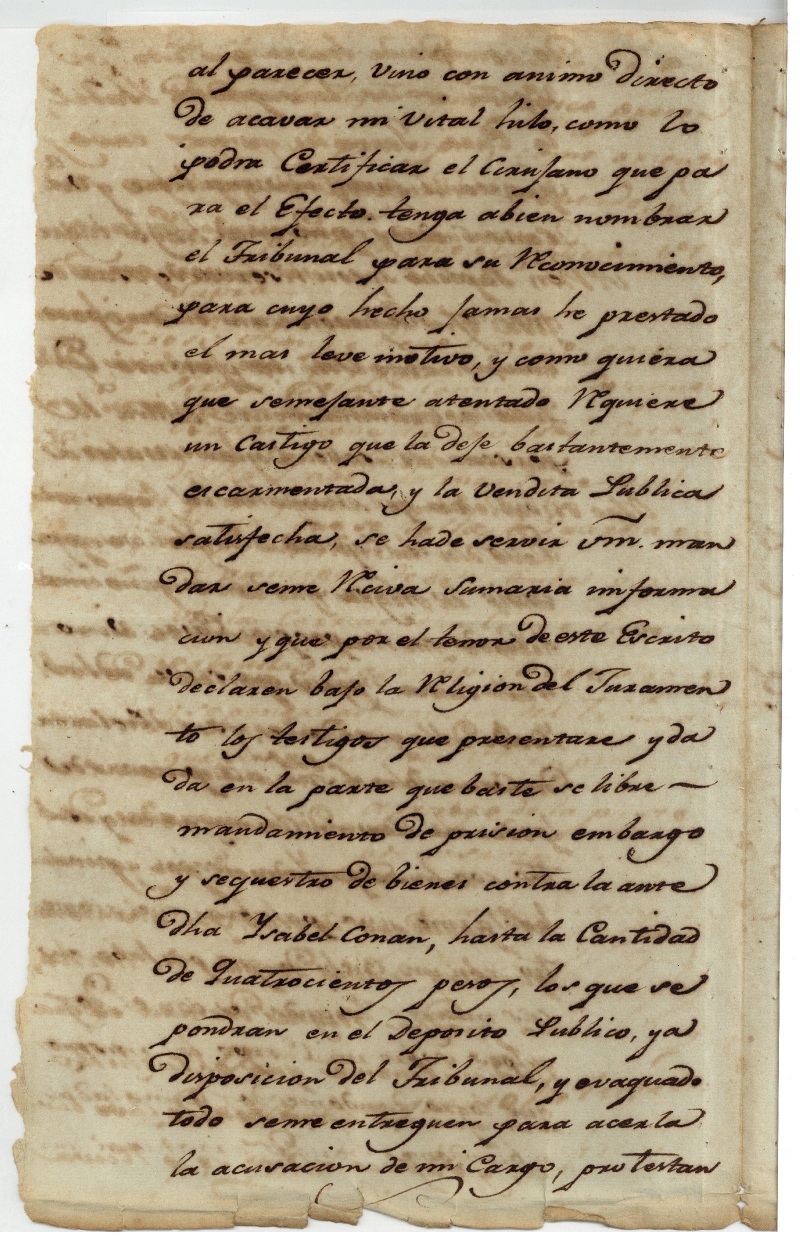 al parecer, vino con animo directo
de acavar mi vital hilo, como lo
podra Certificar el Cirujano que pa
ra el Efecto. tenga abien nombrar
el Tribunal para su Rconocimiento,
para cuyo hecho jamas he prestado
el mas leve motivo, y como quiera
que semejante atentado Rquiere
un Castigo que la deje bastantemente
escarmentada, y la Vendita Publica
satisfecha, se hade servir Vm. man
dar seme Rciva Sumaria informa
cion y que por el tenor de este Escrito
declaren bajo la Rligion del Juramen
to los testigos que presentare y da
da en la parte que baste se libre —
mandamiento de prision embargo
y sequestro de bienes contra la ante
dha Ysabel Conan, hasta la Cantidad
de Quatrocientos pesos, los que se
pondran en el Deposito Publico, ya
disposicion del Tribunal, y evaquado
todo seme entreguen para acerla
la acusacion de mi Cargo, protestan